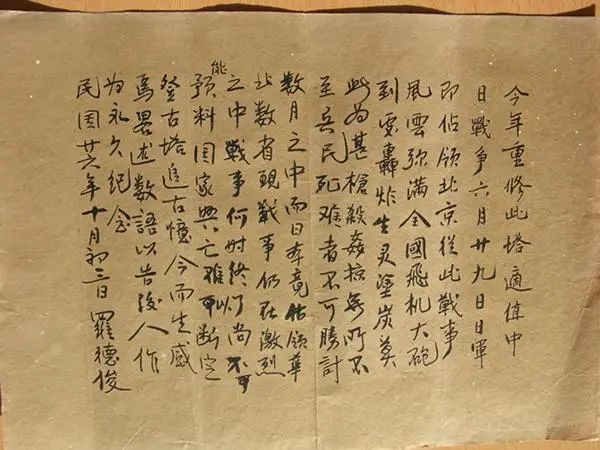 今年重修此塔適值中
日戰爭六月廿九日日軍
即佔領北京從此戰事
風雲弥满全國飛机大砲
到處轟炸生灵塗炭莫
此为甚槍殺姦掠無所不
至兵民死难者不可勝計
数月之中而日本竟佔領華
北数省現戰事仍在激烈
之中戰事何时终了尚不可
能预料国家興亡難以断定
登古塔追古憶今而生感
焉畧述数語以告後人作
为永久纪念
民国廿六年十月初三日羅德俊